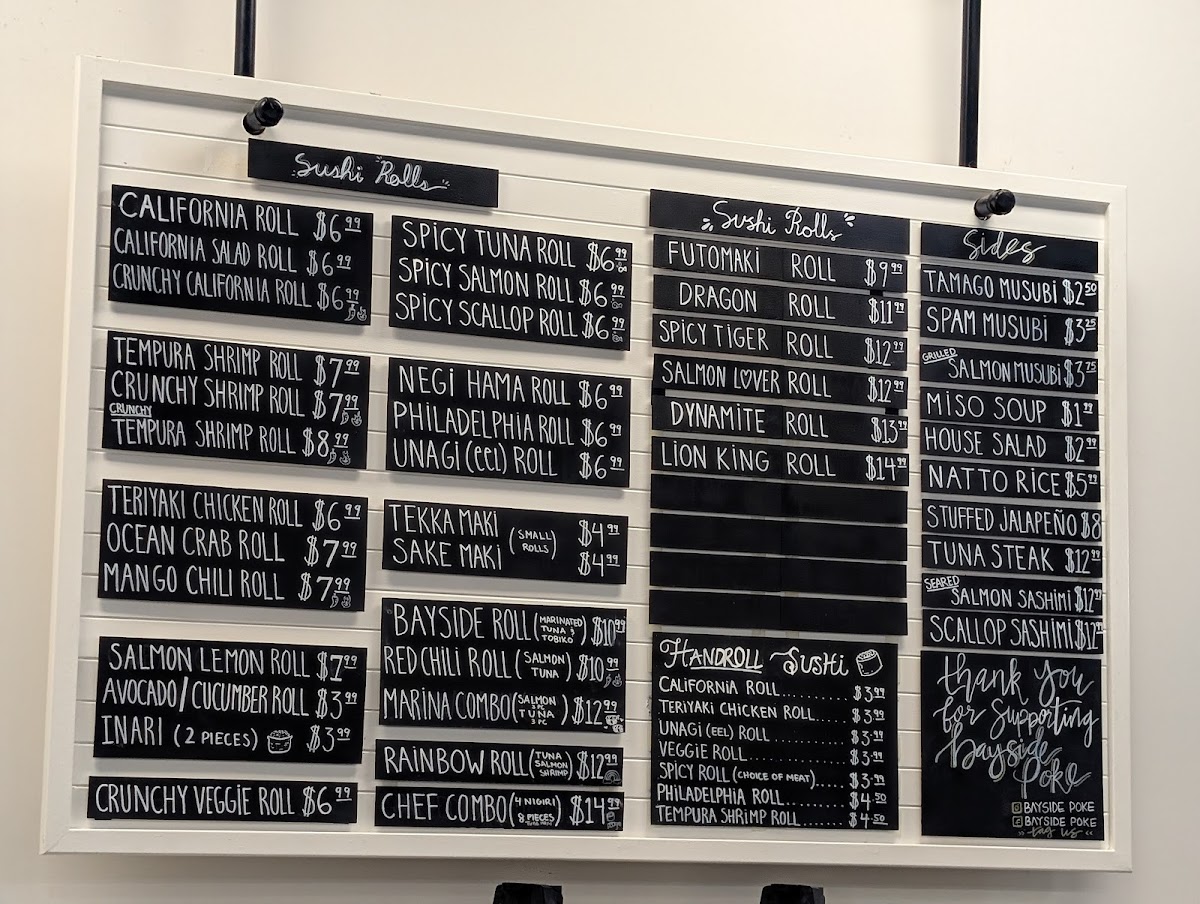 Sushi Rolls
CALIFORNIA ROLL $6.99
CALIFORNIA SALAD ROLL $6.99
CRUNCHY CALIFORNIA ROLL $6.99
TEMPURA SHRIMP ROLL $7.99
CRUNCHY SHRIMP ROLL $7.99
CRUNCHY
TEMPURA SHRIMP ROLL $8.99
TERIYAKI CHICKEN ROLL $6.99
OCEAN CRAB ROLL $7.99
MANGO CHILI ROLL $7.99
SALMON LEMON ROLL $7.99
AVOCADO/CUCUMBER ROLL $3.99
INARI (2 PIECES) $3.99
CRUNCHY VEGGIE ROLL $6.99
SPICY TUNA ROLL $6.99
SPICY SALMON ROLL $6.99
SPICY SCALLOP ROLL $6.99
NEGI HAMA ROLL $6.99
PHILADELPHIA ROLL $6.99
UNAGI (eel) ROLL $6.99
TEKKA MAKI $4.99
(SMALL ROLLS)
SAKE MAKI $4.99
BAYSIDE ROLL (MARINATED TUNA & TOBIKO) $10.99
RED CHILI ROLL (SALMON TUNA) $10.99
MARINA COMBO (SALMON 3 PC TUNA 3 PC) $12.99
RAINBOW ROLL (TUNA SALMON SHRIMP) $12.99
CHEF COMBO (4 NIGIRI 8 PIECES) $14.99
Sushi Rolls
FUTOMAKI ROLL $9.99
DRAGON ROLL $11.99
SPICY TIGER ROLL $12.99
SALMON L♡VER ROLL $12.99
DYNAMITE ROLL $13.99
LION KING ROLL $14.99
HANDROLL SUSHI
CALIFORNIA ROLL........ $3.99
TERIYAKI CHICKEN ROLL.... $3.99
UNAGI (EEL) ROLL ......... $3.99
VEGGIE ROLL............ $3.99
SPICY ROLL (CHOICE OF MEAT).... $3.99
PHILADELPHIA ROLL....... $4.50
TEMPURA SHRIMP ROLL..... $4.50
Sides
TAMAGO MUSUBI $2.50
SPAM MUSUBI $3.25
GRILLED
SALMON MUSUBI $3.75
MISO SOUP $1.99
HOUSE SALAD $2.99
NATTO RICE $5.99
STUFFED JALAPEÑO $8
TUNA STEAK $12.99
SEARED
SALMON SASHIMI $12.99
SCALLOP SASHIMI $12
thank you
for supporting
bayside
Poke
BAYSIDE POKE
BAYSIDE POKE
tag us